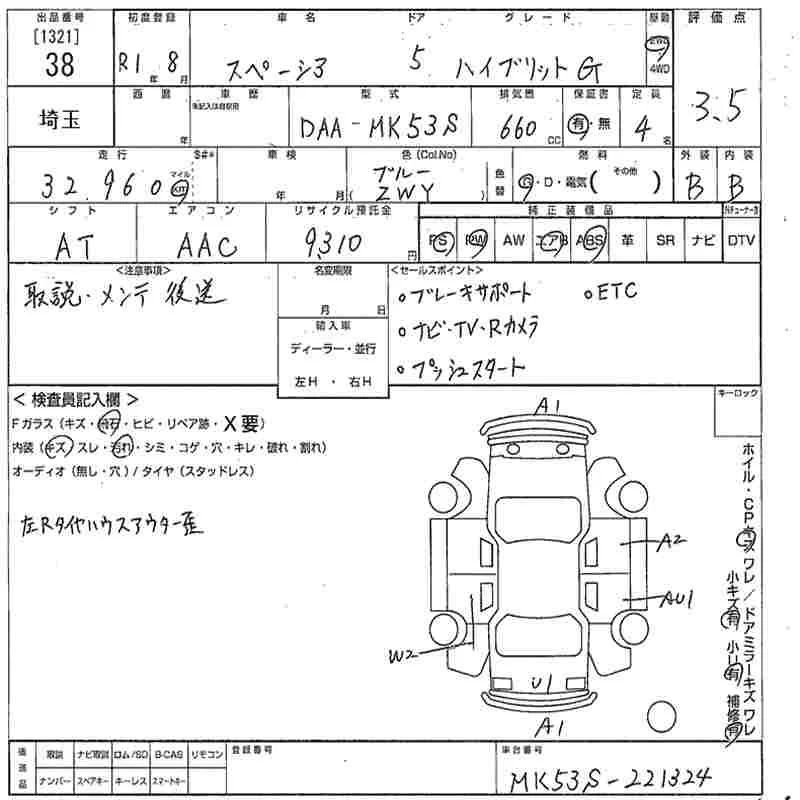 出品番号 初度登録 車名 ドア グレード 駆動 評価点
[1321]
38 R1年 8月 スペーシア 5 ハイブリットG 2WD 4WD 3.5
埼玉 西暦 年 車歴 型式 排気量 保証書 定員
未記入は自家用 DAA-MK53S 660cc 有・無 4名
走行 S#* 車検 色(Col.No) 燃料 外装 内装
32,960 マイル km 年 月 ブルー (ZWY) 色替 G・D・電気( その他 ) B B
シフト エアコン リサイクル預託金 純正装備品
AT AAC 9310円 PS PW AW エアB ABS 革 SR ナビ DTV
<注意事項> 名変期限 <セールスポイント>
取説・メンテ 後送 月 日 ◦ブレーキサポート ◦ETC
輸入車 ◦ナビ・TV・Rカメラ
ディーラー・並行 ◦プッシュスタート
左H ・ 右H
< 検査員記入欄 > キーロック
Fガラス(キズ・飛石・ヒビ・リペア跡・X要)
内装(キズ・スレ・汚れ・シミ・コゲ・穴・キレ・破れ・割れ)
オーディオ(無し・穴)/タイヤ(スタッドレス)
左Rタイヤハウスアウター歪
A1
A2
AU1
W2
U1
A1
ホイル・CPキズ ワレ/ドアミラーキズ ワレ
小キズ有 小凹有 補修有
後送品 取説 ナビ取説 ロム/SD B-CAS リモコン 登録番号 車台番号
ナンバー スペアキー キーレス スマートキー MK53S-221324